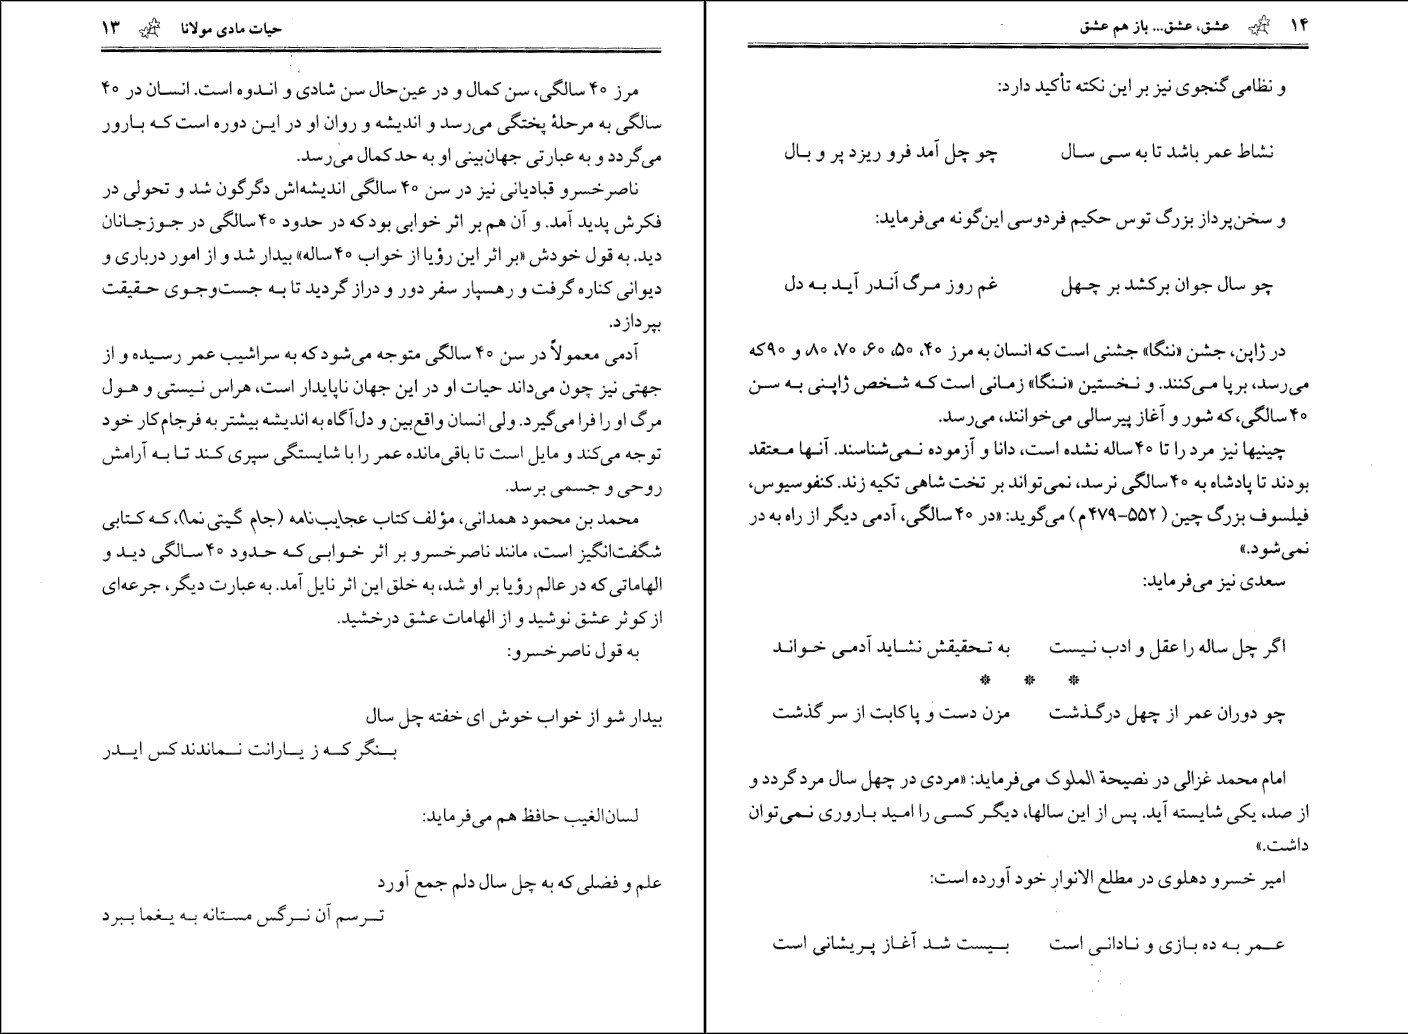 حیات مادی مولانا ۱۳
مرز ۴۰ سالگی، سن کمال و در عین‌حال سن شادی و انـدوه است. انسـان در ۴۰
سالگی به مرحلهٔ پختگی می‌رسد و اندیشه و روان او در ایـن دوره است کـه بـارور
می‌گردد و به عبارتی جهان‌بینی او به حد کمال می‌رسد.
ناصرخسرو قبادیانی نیز در سن ۴۰ سالگی اندیشه‌اش دگرگون شد و تحولی در
فکرش پدید آمد. و آن هم بر اثر خوابی بود که در حدود ۴۰ سالگی در جـوزجـانان
دید. به قول خودش «بر اثر این رؤیا از خواب ۴۰ ساله» بیدار شد و از امور درباری و
دیوانی کناره گرفت و رهسپار سفر دور و دراز گردید تا بـه جسـت‌وجـوی حـقیقت
بپردازد.
آدمی معمولاً در سن ۴۰ سالگی متوجه می‌شود که به سراشیب عمر رسیده و از
جهتی نیز چون می‌داند حیات او در این جهان ناپایدار است، هراس نـیستی و هـول
مرگ او را فرا می‌گیرد. ولی انسان واقع‌بین و دل‌آگاه به اندیشه بیشتر به فرجام کار خود
توجه می‌کند و مایل است تا باقی‌مانده عمر را با شایستگی سپری کـند تـا بـه آرامش
روحی و جسمی برسد.
محمد بن محمود همدانی، مؤلف کتاب عجایب‌نامه (جام گیتی‌نما)، کـه کـتابی
شگفت‌انگیز است، مانند ناصرخسرو بر اثر خـوابـی کـه حدود ۴۰ سـالگی دیـد و
الهاماتی که در عالم رؤیا بر او شد، به خلق این اثر نایل آمد. به عبارت دیگر، جرعه‌ای
از کوثر عشق نوشید و از الهامات عشق درخشید.
به قول ناصرخسرو:
بیدار شو از خواب خوش ای خفته چل سال
بـنگر کـه ز یـارانت نـماندند کس ایـدر
لسان‌الغیب حافظ هم می‌فرماید:
علم و فضلی که به چل سال دلم جمع آورد
تـرسم آن نـرگس مسـتانه بـه یـغما بـبرد
۱۴ عشق، عشق... باز هم عشق
و نظامی گنجوی نیز بر این نکته تأکید دارد:
نشاط عمر باشد تا به سـی سـال چو چل آمد فرو ریزد پر و بـال
و سخن‌پرداز بزرگ توس حکیم فردوسی این‌گونه می‌فرماید:
چو سال جوان برکشد بر چـهل غم روز مـرگ اَنـدر آیـد بـه دل
در ژاپن، جشن «ننگا» جشنی است که انسان به مرز ۴۰، ۵۰، ۶۰، ۷۰، ۸۰، و ۹۰ که
می‌رسد، برپا مـی‌کنند. و نـخستین «نـنگا» زمانی است کـه شـخص ژاپـنی بـه سـن
۴۰ سالگی، که شور و آغاز پیرسالی می‌خوانند، می‌رسد.
چینیها نیز مرد را تا ۴۰ ساله نشده است، دانا و آزموده نـمی‌شناسند. آنـها مـعتقد
بودند تا پادشاه به ۴۰ سالگی نرسد، نمی‌تواند بر تخت شاهی تکیه زند. کنفوسیوس،
فیلسوف بزرگ چین (۵۵۲-۴۷۹م) می‌گوید: «در ۴۰ سالگی، آدمی دیگر از راه به در
نمی‌شود.»
سعدی نیز می‌فرماید:
اگر چل ساله را عقل و ادب نـیست به تـحقیقش نشـاید آدمـی خـوانـد
* * *
چو دوران عمر از چهل درگـذشت مزن دست و پا کابت از سر گذشت
امام محمد غزالی در نصیحة الملوک می‌فرماید: «مردی در چهل سال مرد گردد و
از صد، یکی شایسته آید. پس از این سالها، دیگـر کسـی را امـید بـاروری نـمی‌توان
داشت.»
امیر خسرو دهلوی در مطلع الانوار خود آورده است:
عـمر بـه ده بـازی و نـادانـی است بـیست شـد آغـاز پـریشانی است